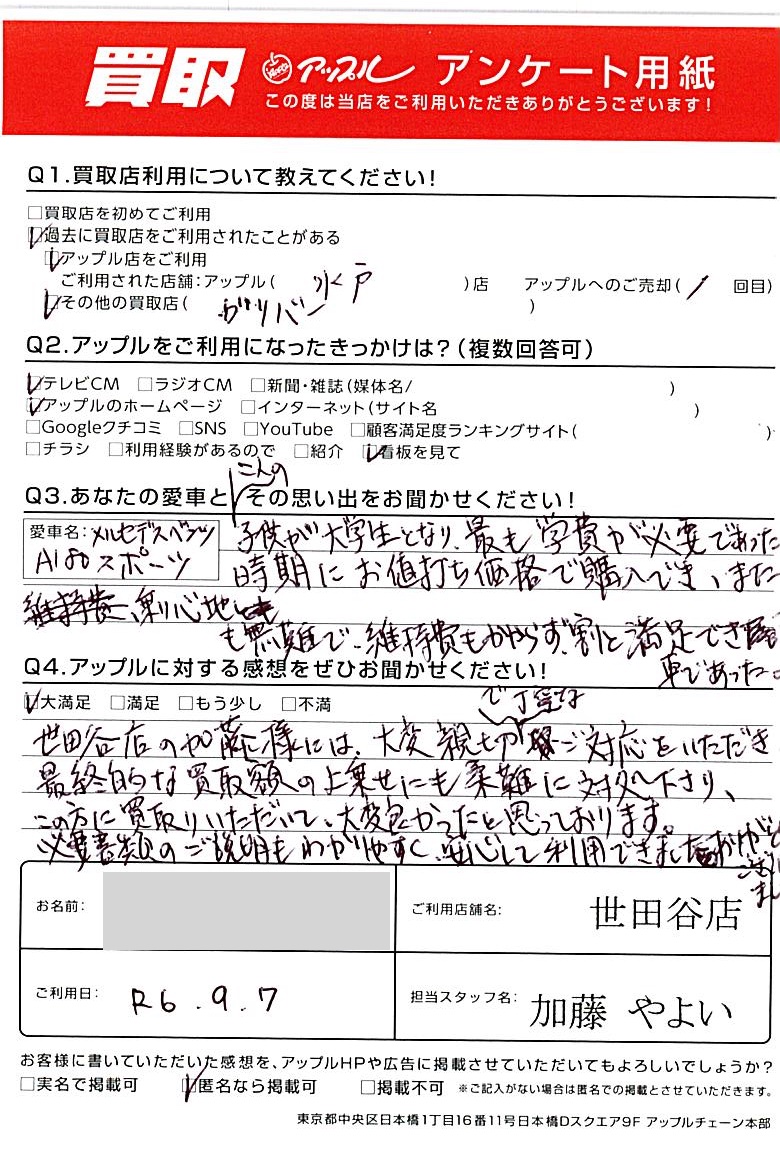 買取 アップル アンケート用紙
この度は当店をご利用いただきありがとうございます!
Q1.買取店利用について教えてください!
□買取店を初めてご利用
☑過去に買取店をご利用されたことがある
☑アップル店をご利用
ご利用された店舗:アップル( 水戸 )店 アップルへのご売却( / 回目)
☑その他の買取店( ガリバー )
Q2.アップルをご利用になったきっかけは?(複数回答可)
☑テレビCM □ラジオCM □新聞・雑誌(媒体名/ )
☑アップルのホームページ □インターネット(サイト名 )
□Googleクチコミ □SNS □YouTube □顧客満足度ランキングサイト( )
□チラシ □利用経験があるので □紹介 ☑看板を見て
Q3.あなたの愛車とその思い出をお聞かせください!
愛車名:メルセデスベンツ
A180スポーツ
二人の
子供が大学生となり、最も学費が必要であった
時期にお値打ち価格で購入でき、また
維持費、乗り心地
も無難で、維持費もかからず、割と満足でき
車であった。
Q4.アップルに対する感想をぜひお聞かせください!
☑大満足 □満足 □もう少し □不満
で丁寧な
世田谷店の加藤様には、大変親切ご対応をいただき
最終的な買取額の上乗せにも柔難に対処下さり、
この方に買取りいただいて、大変良かったと思っております。
必要書類のご説明もわかりやすく、安心して利用できました
お名前:
ご利用店舗名: 世田谷店
ご利用日: R6.9.7
担当スタッフ名: 加藤 やよい
お客様に書いていただいた感想を、アップルHPや広告に掲載させていただいてもよろしいでしょうか?
□実名で掲載可 ☑匿名なら掲載可 □掲載不可 ※ご記入がない場合は匿名での掲載とさせていただきます。
東京都中央区日本橋1丁目16番11号日本橋Dスクエア9F アップルチェーン本部